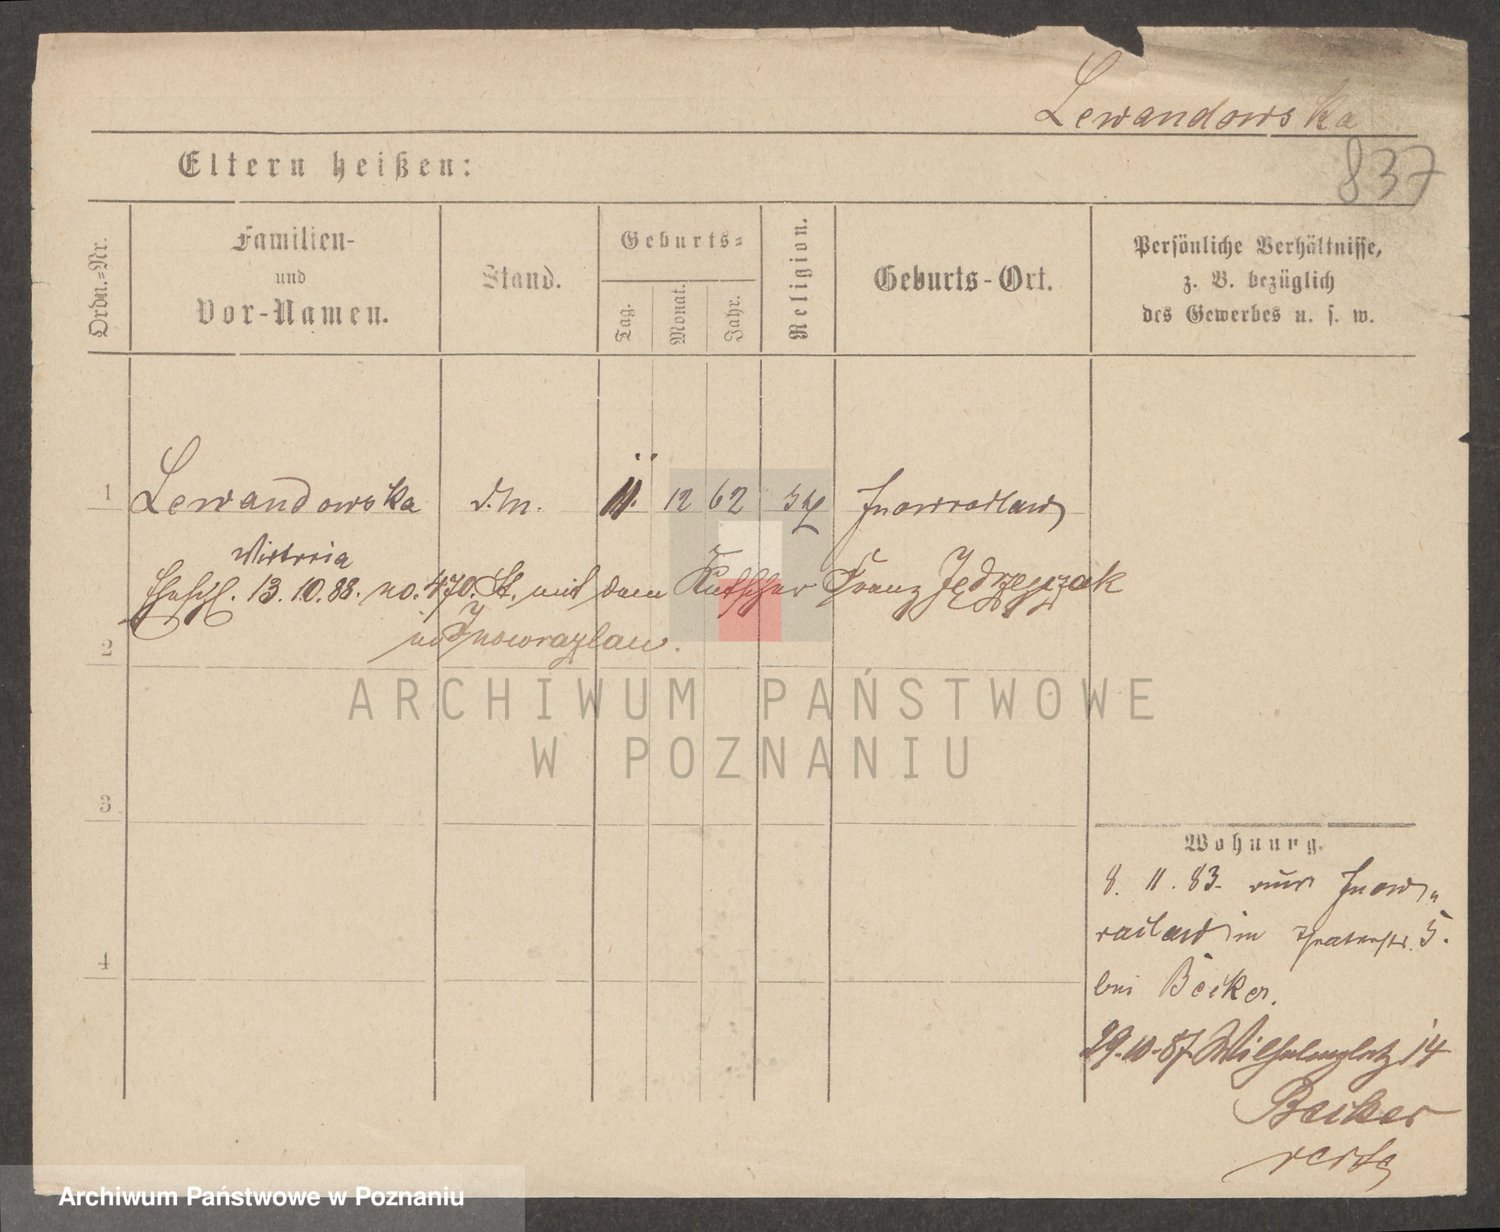 Lewandowska
837
Eltern heißen:
Ordn.-Nr.
Familien-
und
Vor-Namen.
Stand.
Geburts-
Tag.
Monat.
Jahr.
Religion.
Geburts-Ort.
Persönliche Verhältnisse,
z. B. bezüglich
des Gewerbes u. s. w.
1
Lewandowska d.m. 11. 12 62 Inowrazlaw
Victoria
Eheschl. 13.10.88. no. 470. St. mit dem Kutscher Franz Jędrzejczak
in Inowrazlaw.
2
3
4
Wohnung.
8. 11. 83. aus Inow-
razlaw in 5.
bei Becker.
29.10.87 Wilhelmplatz 14
Becker
ARCHIWUM PAŃSTWOWE
W POZNANIU
Archiwum Państwowe w Poznaniu